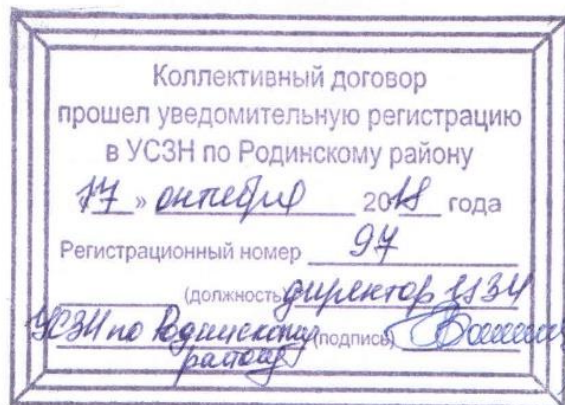 Коллективный договор
прошел уведомительную регистрацию
в УСЗН по Родинскому району
17 » октября 2018 года
Регистрационный номер 97
(должность) директор ЦЗН
УСЗН по Родинскому (подпись)
району